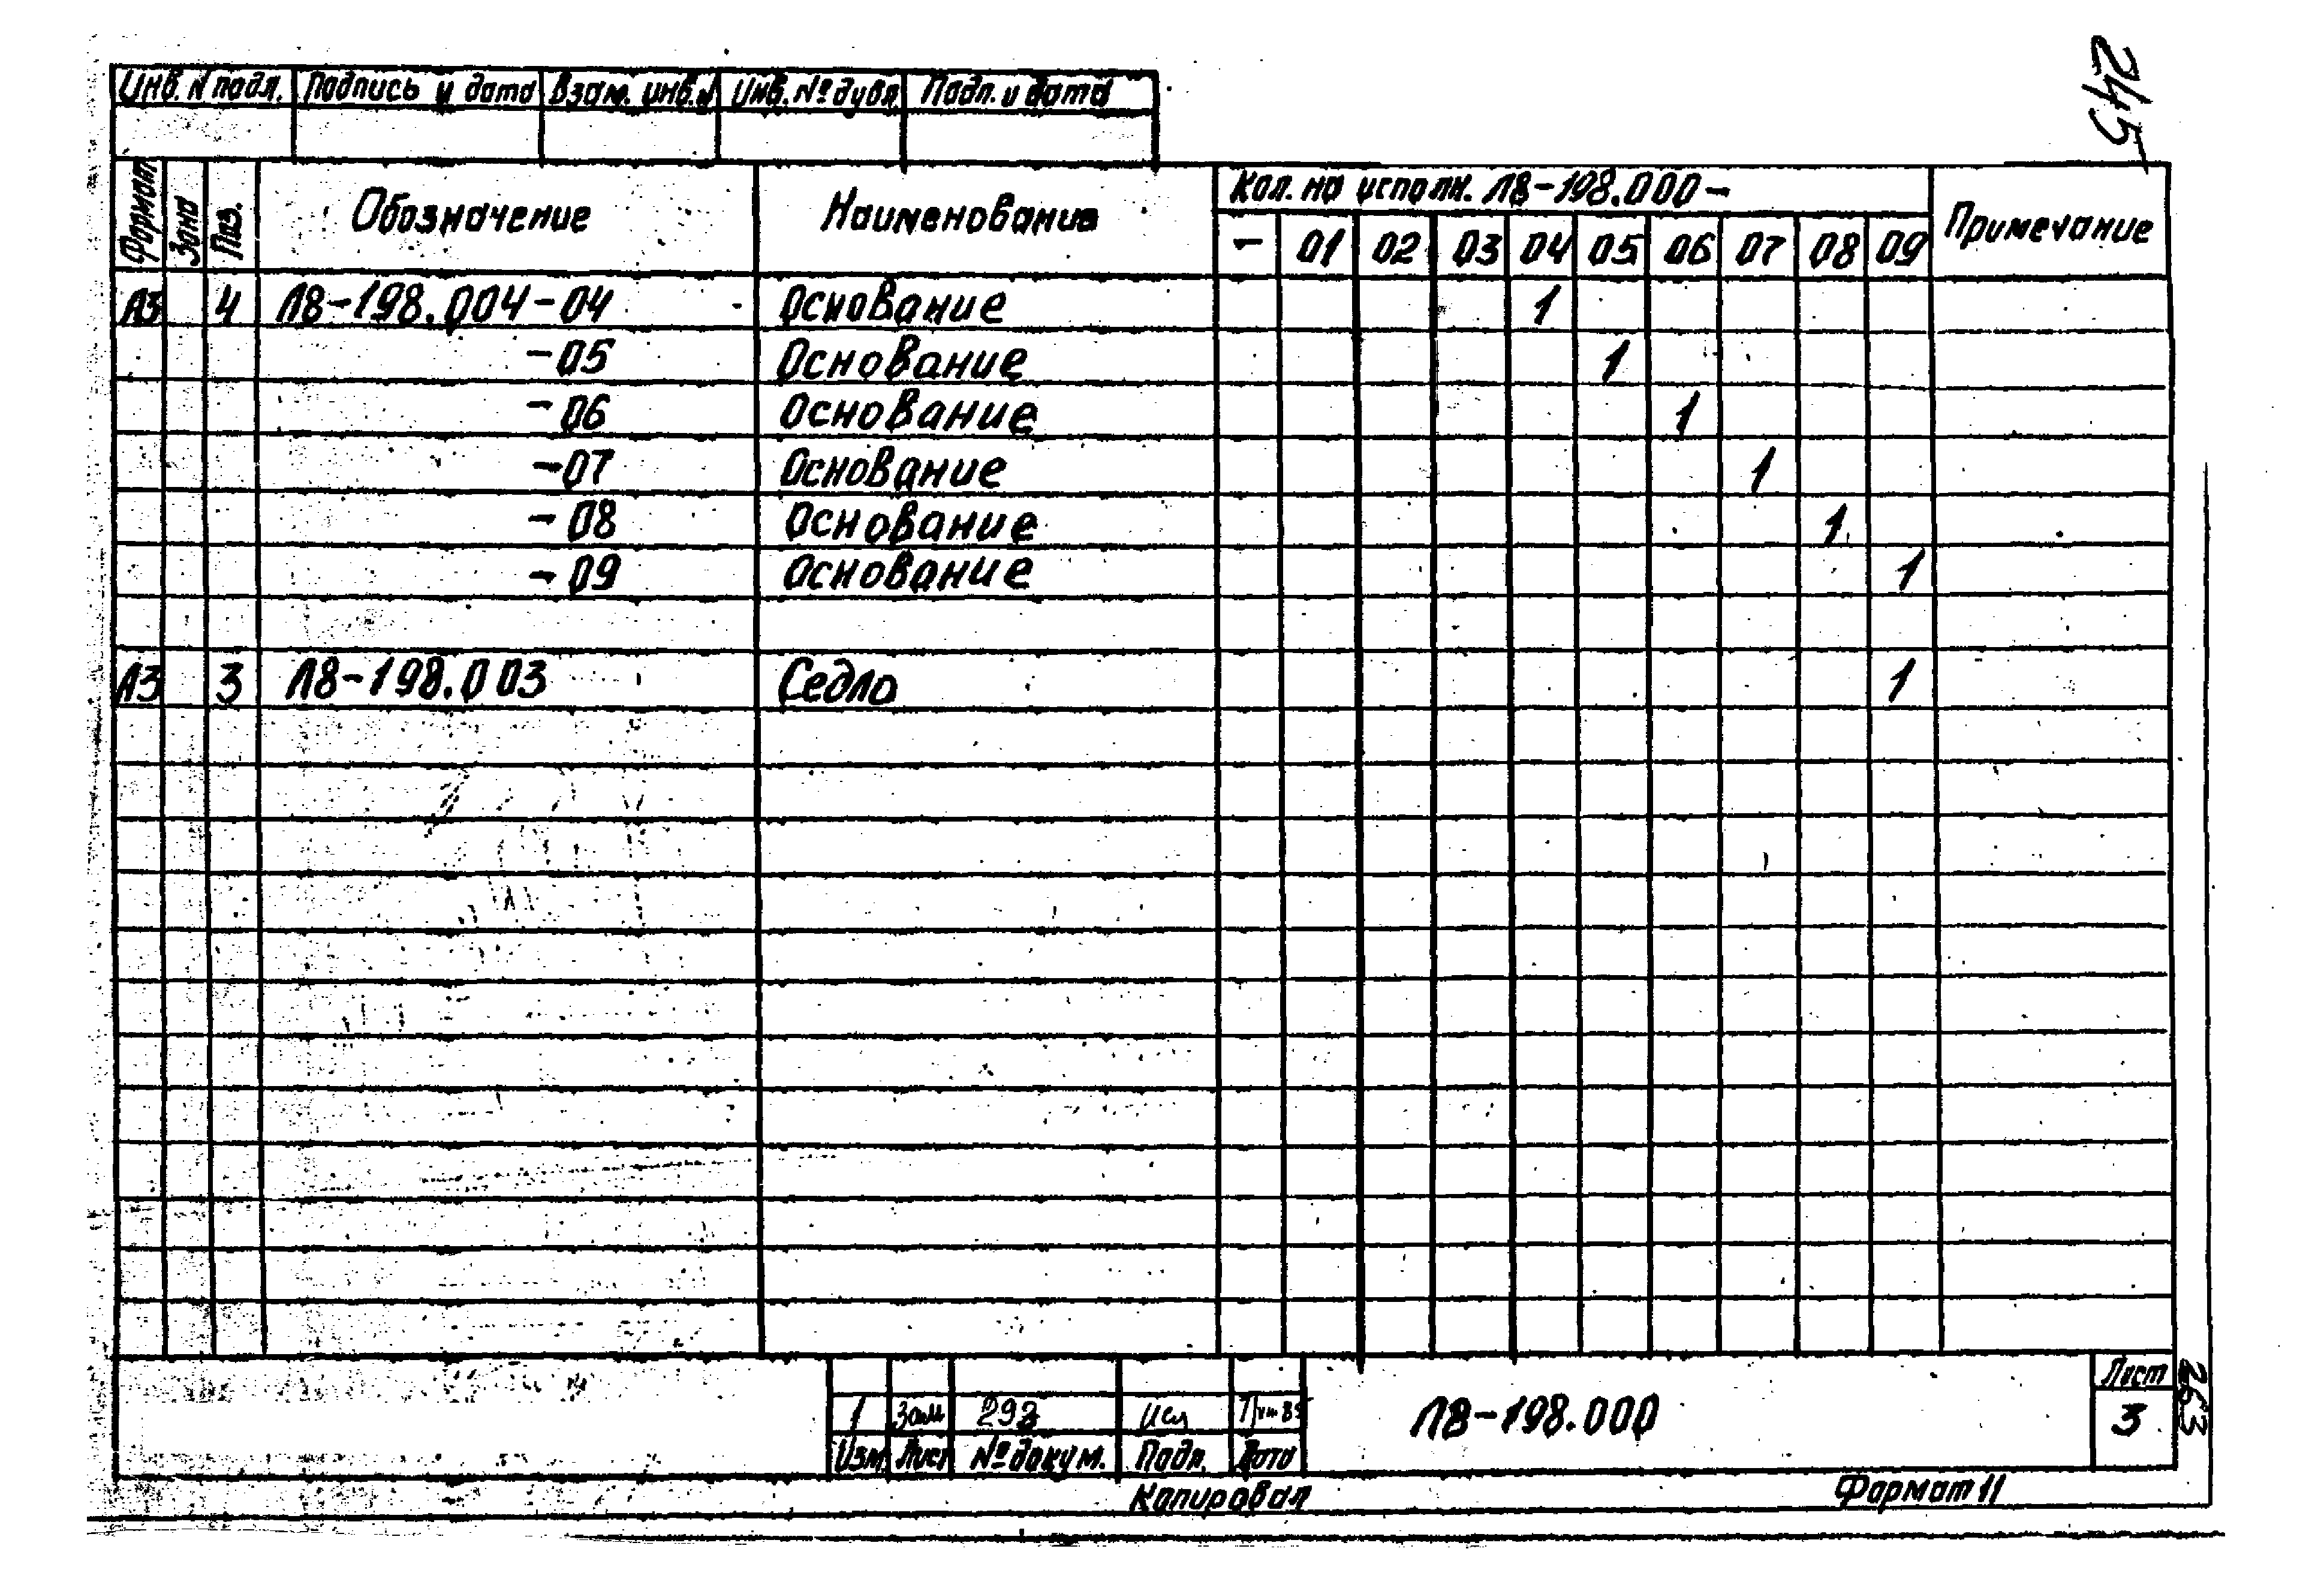 245
Инв. N подл. Подпись и дата Взам. инв. N Инв. № дубл. Подп. и дата
Формат Зона Поз. Обозначение Наименование Кол. на исполн. Л8-198.000- Примечание
- 01 02 03 04 05 06 07 08 09
А3 4 Л8-198.004-04 Основание 1
-05 Основание 1
-06 Основание 1
-07 Основание 1
-08 Основание 1
-09 Основание 1
А3 3 Л8-198.003 Седло 1
1 Зам 292
Изм Лист № докум. Подп. Дата
Л8-198.000
Лист
3
263
Копировал Формат 11